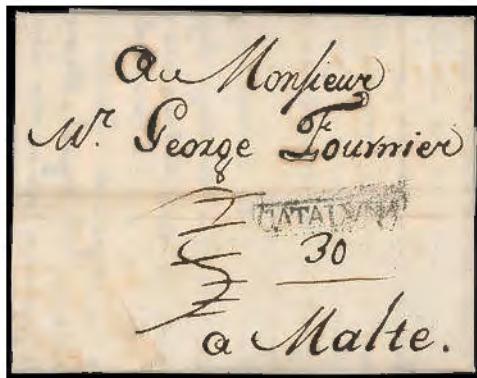 Au Monsieur
Mr. George Fournier
CATALVÑA
30
a Malte.